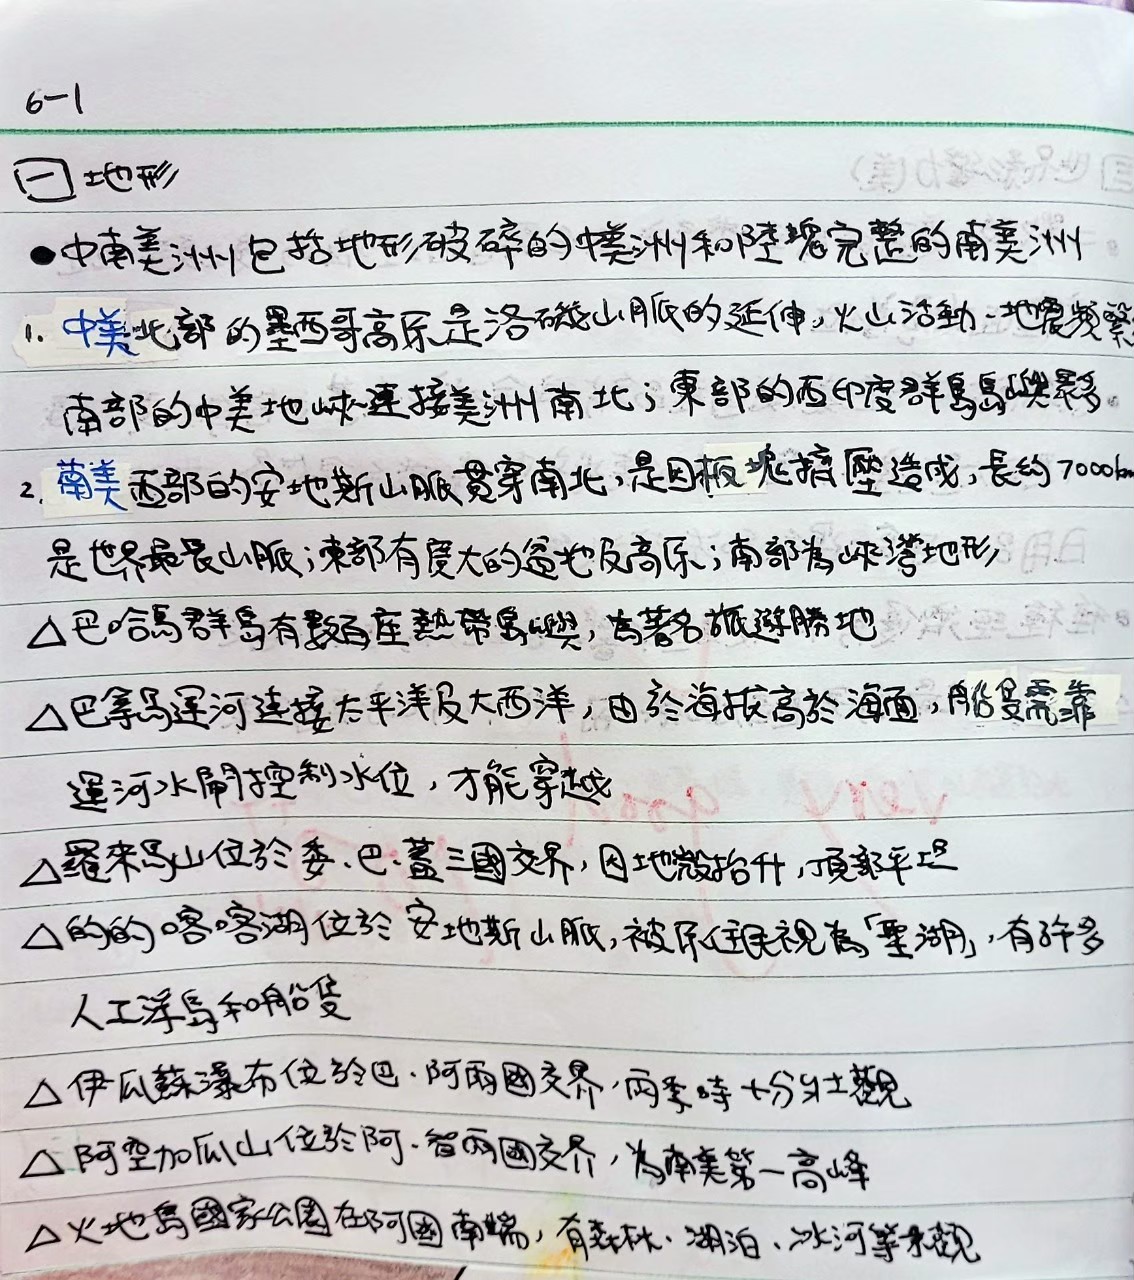 6-1
一 地形
●中南美洲包括地形破碎的中美洲和陸塊完整的南美洲
1. 中美北部的墨西哥高原是洛磯山脈的延伸,火山活動、地震頻繁
南部的中美地峽連接美洲南北;東部的西印度群島島嶼眾多。
2. 南美西部的安地斯山脈貫穿南北,是因板塊擠壓造成,長約7000km
是世界最長山脈;東部有廣大的盆地及高原;南部為峽灣地形
△巴哈馬群島有數百座熱帶島嶼,為著名旅遊勝地
△巴拿馬運河連接太平洋及大西洋,由於海拔高於海面,船隻需靠
運河水閘控制水位,才能穿越
△羅來馬山位於委、巴、蓋三國交界,因地殼抬升,頂部平坦
△的的喀喀湖位於安地斯山脈,被原住民視為「聖湖」,有許多
人工浮島和船隻
△伊瓜蘇瀑布位於巴、阿兩國交界,雨季時十分壯觀
△阿空加瓜山位於阿、智兩國交界,為南美第一高峰
△火地島國家公園在阿國南端,有森林、湖泊、冰河等景觀